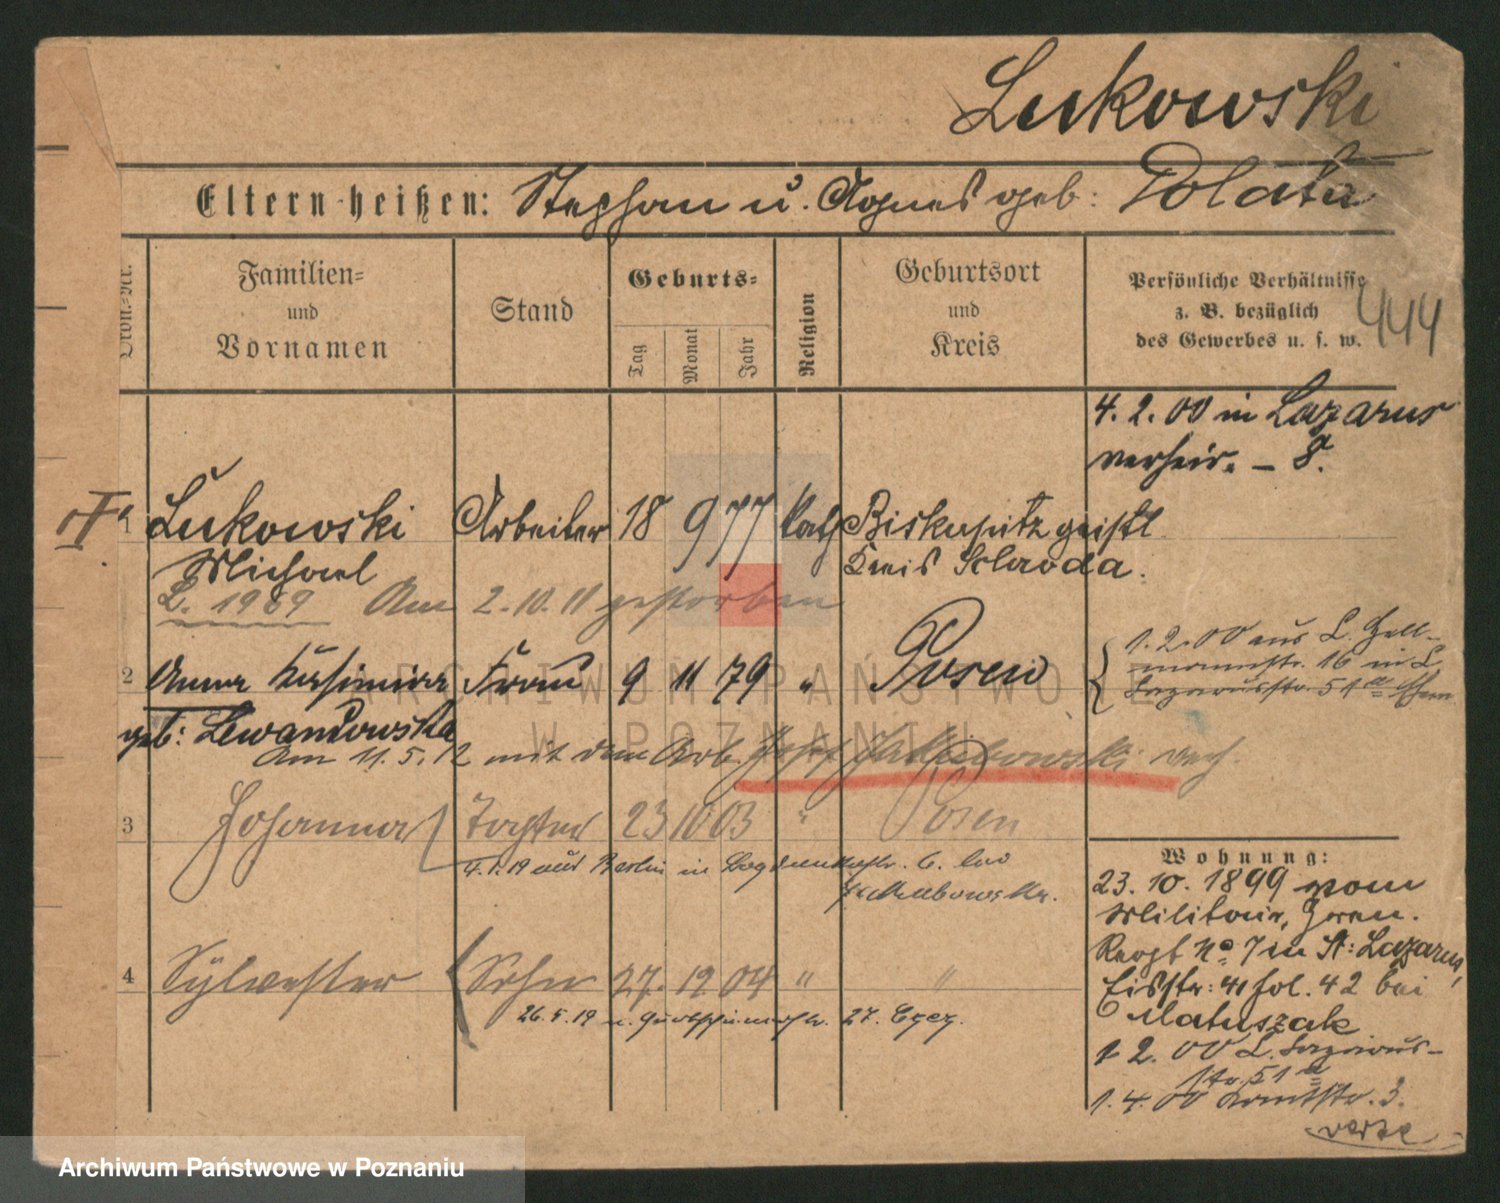 Lukowski
Eltern heißen: Stephan u. Agnes geb: Polata
Ordn.-Nr.
Familien-
und
Vornamen
Stand
Geburts-
Tag
Monat
Jahr
Religion
Geburtsort
und
Kreis
Persönliche Verhältnisse
z. B. bezüglich
des Gewerbes u. s. w.
444
4. 2. 00 in Lazarus
verheir. – S.
1 Lukowski Arbeiter 18 9 77 kath Biskupitz geistl
Michael Kreis Schroda.
L. 1969 Am 2. 10. 11 gestorben
2 Anna Kasimira Frau 9 11 79 " Posen
geb: Lewandowska
1. 2. 00 aus L.
16 in L.
Lazarusstr. 51a
Am 11. 5. 12 mit dem Arb. Josef verh.
3 Johanna Tochter 23 10 03 " Posen
4. 1. 19 aus Berlin in 6. bei
4 Sylvester Sohn 27. 12 04 " "
26. 5. 19 27.
Wohnung:
23. 10. 1899 vom
Militair, Gren.
Regt No 7 in St: Lazarus,
Eisstr: 41 fol. 42 bei
Matuszak
1 2. 00 L. Lazarus-
str. 51a
1. 4. 00 3.
verte
ARCHIWUM PAŃSTWOWE
W POZNANIU
Archiwum Państwowe w Poznaniu